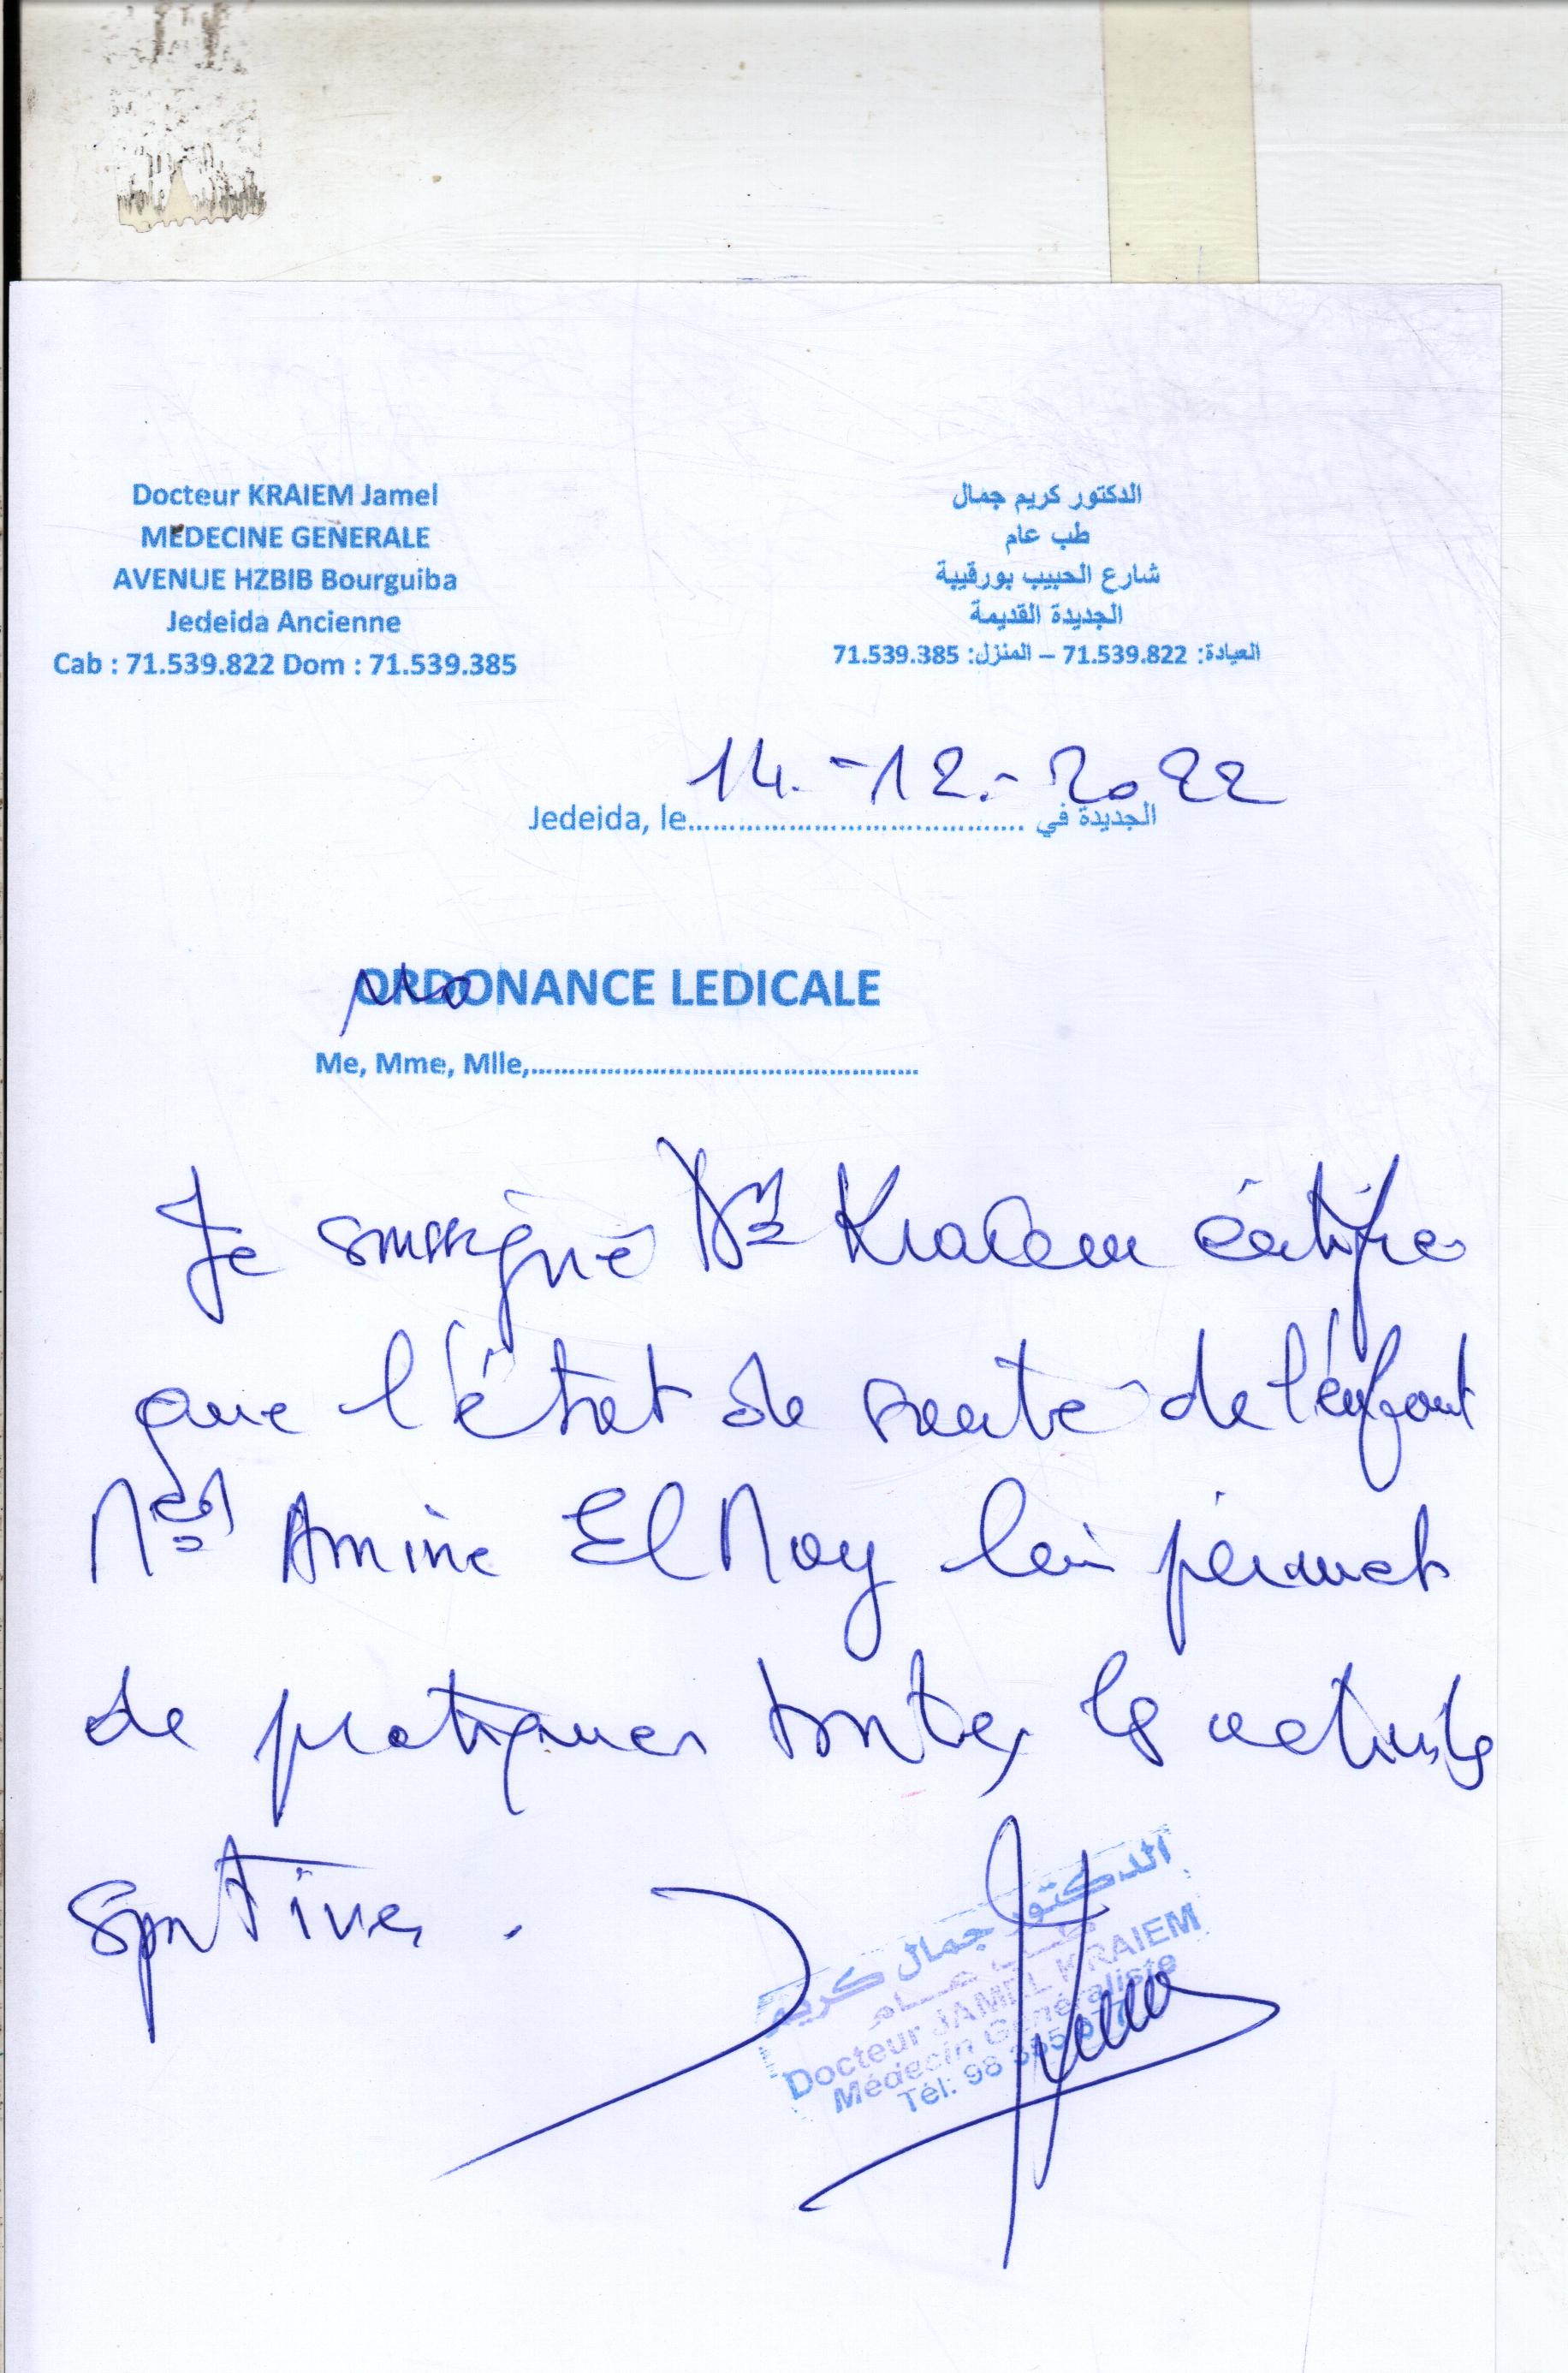 Docteur KRAIEM Jamel
MEDECINE GENERALE
AVENUE HZBIB Bourguiba
Jedeida Ancienne
Cab : 71.539.822 Dom : 71.539.385
الدكتور كريم جمال
طب عام
شارع الحبيب بورقيبة
الجديدة القديمة
العيادة: 71.539.822 – المنزل: 71.539.385
14.-12.-2022
Jedeida, le.......................................... الجديدة في
ORDONANCE LEDICALE
Me, Mme, Mlle,..................................................
Je soussigné Dr Kraiem certifie
que l'état de santé de l'enfant
Med Amine El May lui permet
de pratiquer toutes les activités
sportives .
الدكتور جمال كريم
طب عام
Docteur JAMEL KRAIEM
Médecin Généraliste
Tél: 98